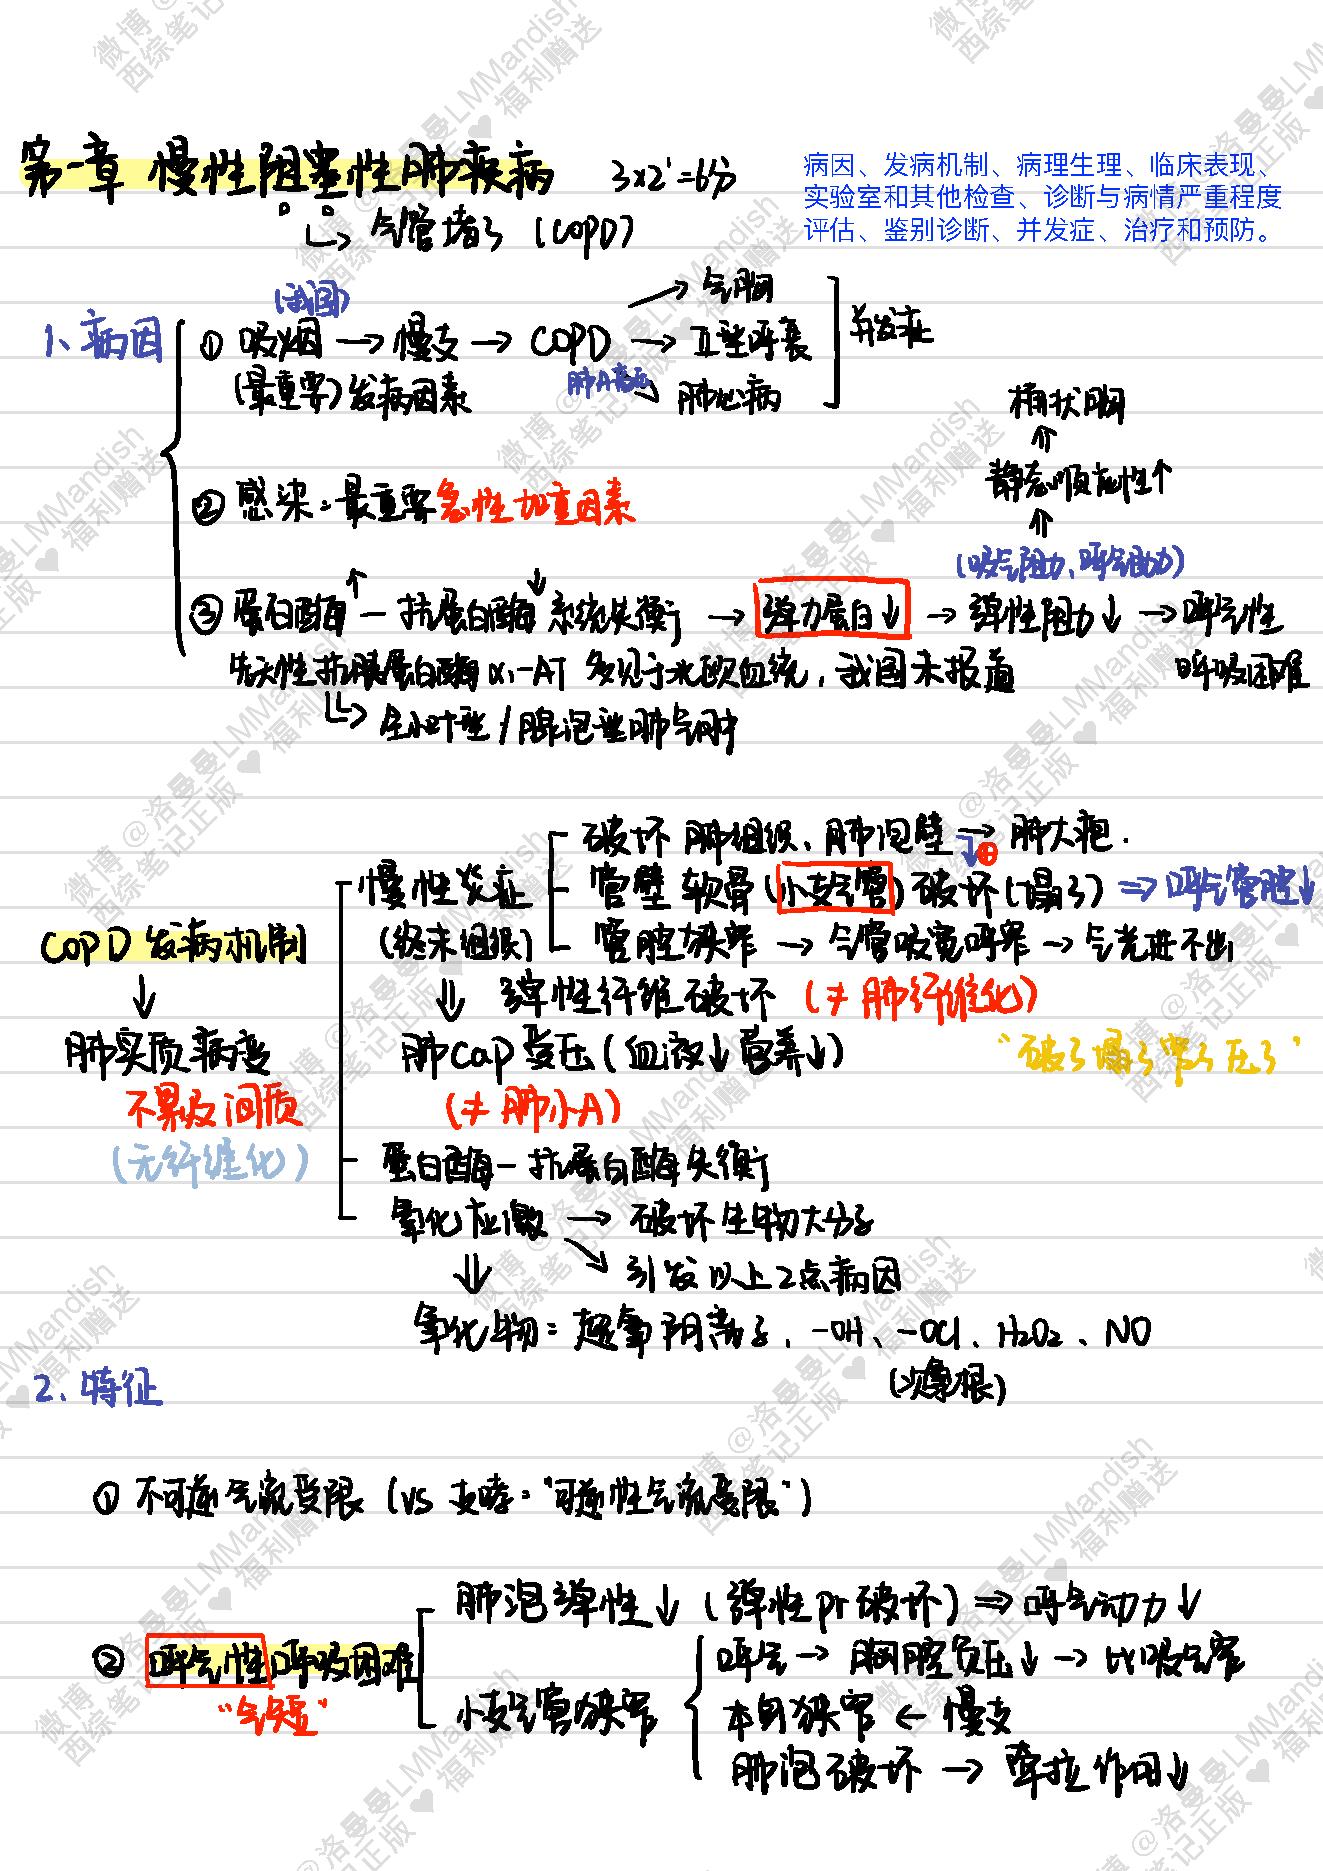 第一章 慢性阻塞性肺疾病 3×2'=6分
病因、发病机制、病理生理、临床表现、
实验室和其他检查、诊断与病情严重程度
评估、鉴别诊断、并发症、治疗和预防。
↳ 气管堵了 (COPD)
(我国)
1、病因
① 吸烟 → 慢支 → COPD → Ⅱ型呼衰
→ 气胸
并发症
(最重要)发病因素
肺A高压
→ 肺心病
桶状胸
↑
静态顺应性↑
↑
(吸气阻力、呼气动力)
② 感染:最重要急性加重因素
③ 蛋白酶↑ — 抗蛋白酶↓ 系统失衡 → 弹力蛋白↓ → 弹性阻力↓ → 呼气性
呼吸困难
先天性抗胰蛋白酶 α₁-AT 多见于北欧血统,我国未报道
↳ 全小叶型/腺泡型肺气肿
COPD 发病机制
↓
肺实质病变
不累及间质
(无纤维化)
慢性炎症
(终末细级)
破坏 肺组织、肺泡壁 → 肺大疱.
↓⊕
管壁软骨(小支气管)破坏(塌了) ⇒ 呼气管腔↓
管腔狭窄 → 气管吸宽呼窄 → 气光进不出
⇓ 弹性纤维破坏 (≠ 肺纤维化)
肺cap受压(血液↓营养↓)
“破了塌了窄了压了”
(≠ 肺小A)
蛋白酶—抗蛋白酶失衡
氧化应激 → 破坏生物大分子
↘ 引发以上2点病因
⇓
氧化物: 超氧阴离子、-OH、-OCl、H₂O₂、NO
(次氯根)
2、特征
① 不可逆气流受限 (vs 支哮:“可逆性气流受限”)
② 呼气性呼吸困难
“气短”
肺泡弹性↓ (弹性pr破坏) ⇒ 呼气动力↓
小支气管狭窄
呼气 → 胸腔负压↓ → 比吸气窄
本身狭窄 ← 慢支
肺泡破坏 → 牵拉作用↓
微博 @洛曼曼LMMandish
西综笔记正版 ♥ 福利赠送